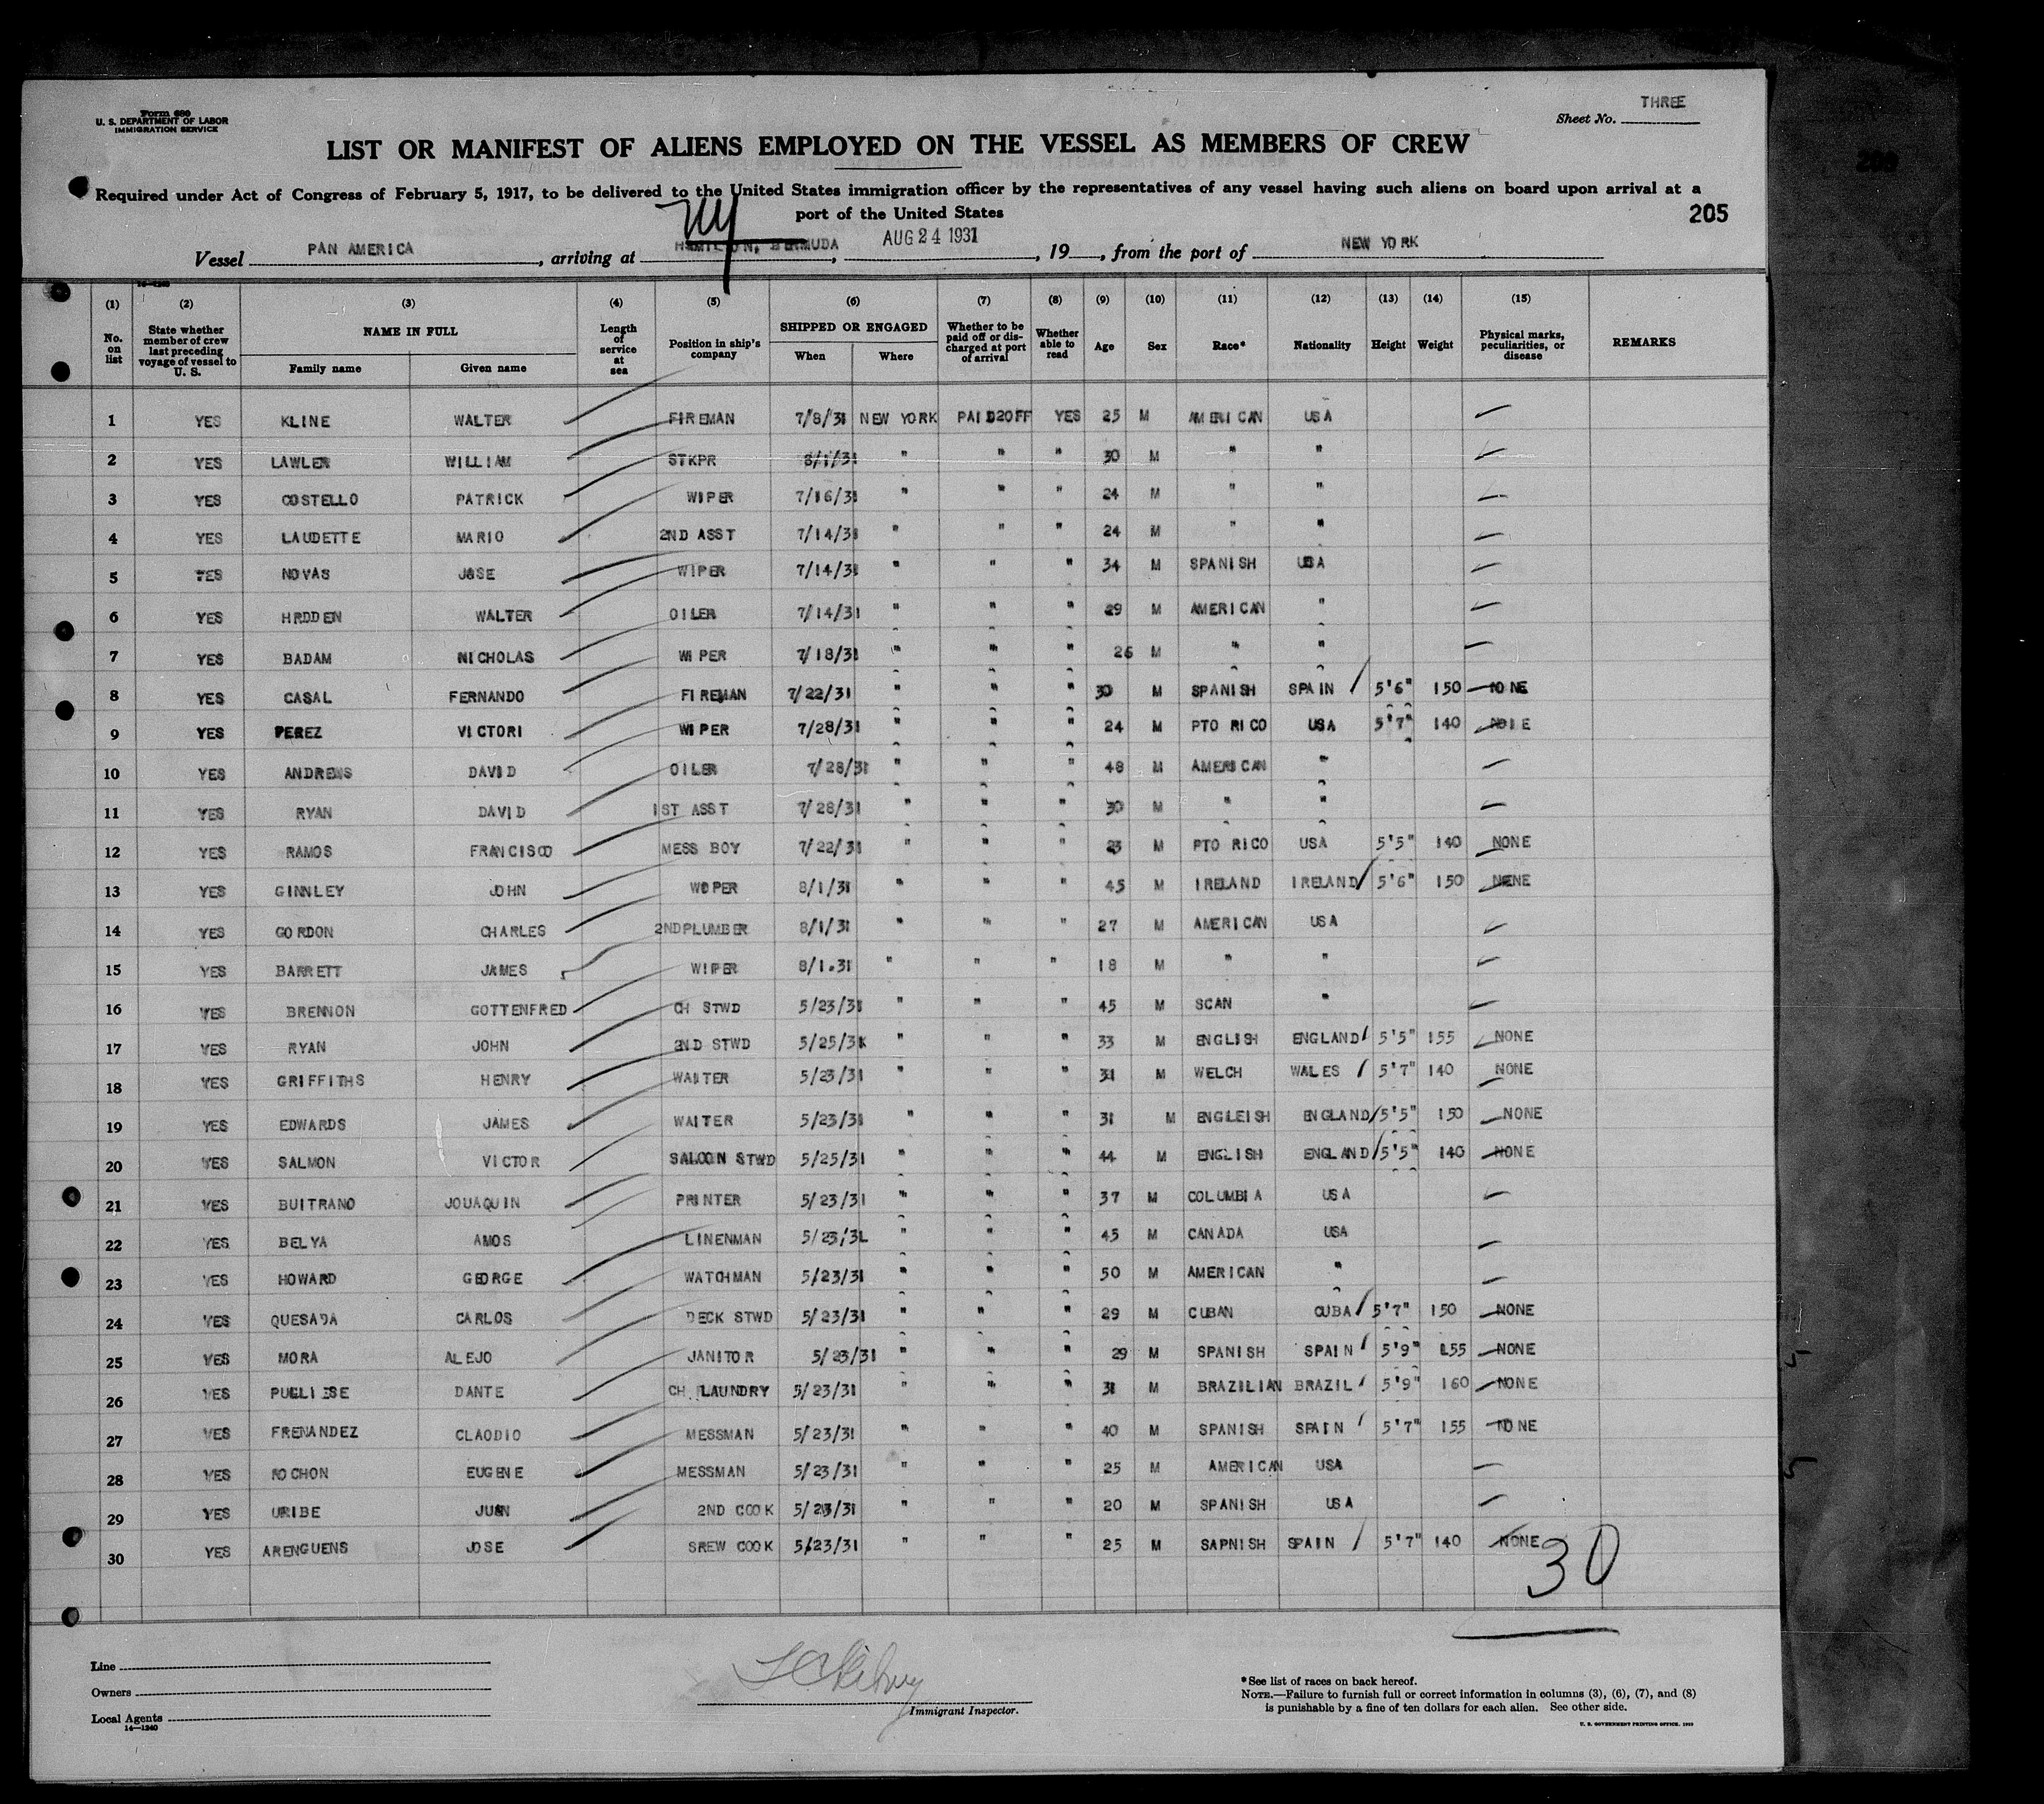 Form 680
U. S. DEPARTMENT OF LABOR
IMMIGRATION SERVICE
THREE
Sheet No.
LIST OR MANIFEST OF ALIENS EMPLOYED ON THE VESSEL AS MEMBERS OF CREW
Required under Act of Congress of February 5, 1917, to be delivered to the United States immigration officer by the representatives of any vessel having such aliens on board upon arrival at a
port of the United States
205
Vessel PAN AMERICA, arriving at NY HAMILTON, BERMUDA, AUG 24 1931, 19, from the port of NEW YORK
14—1240
(1) (2) (3) (4) (5) (6) (7) (8) (9) (10) (11) (12) (13) (14) (15)
No. on list State whether member of crew last preceding voyage of vessel to U. S. NAME IN FULL Family name Given name Length of service at sea Position in ship's company SHIPPED OR ENGAGED When Where Whether to be paid off or discharged at port of arrival Whether able to read Age Sex Race* Nationality Height Weight Physical marks, peculiarities, or disease REMARKS
1 YES KLINE WALTER FIREMAN 7/8/31 NEW YORK PAID2OFF YES 25 M AMERICAN USA
2 YES LAWLER WILLIAM STKPR 8/1/31 " " " 30 M " "
3 YES COSTELLO PATRICK WIPER 7/16/31 " " " 24 M " "
4 YES LAUDETTE MARIO 2ND ASST 7/14/31 " " " 24 M " "
5 YES NOVAS JOSE WIPER 7/14/31 " " " 34 M SPANISH USA
6 YES HRDDEN WALTER OILER 7/14/31 " " " 29 M AMERICAN "
7 YES BADAM NICHOLAS WIPER 7/18/31 " " " 26 M " "
8 YES CASAL FERNANDO FIREMAN 7/22/31 " " " 30 M SPANISH SPAIN 5'6" 150 NONE
9 YES PEREZ VICTORI WIPER 7/28/31 " " " 24 M PTO RICO USA 5'7" 140
10 YES ANDREWS DAVID OILER 7/28/31 " " " 48 M AMERICAN "
11 YES RYAN DAVID 1ST ASST 7/28/31 " " " 30 M " "
12 YES RAMOS FRANCISCO MESS BOY 7/22/31 " " " 23 M PTO RICO USA 5'5" 140 NONE
13 YES GINNLEY JOHN WOPER 8/1/31 " " " 45 M IRELAND IRELAND 5'6" 150 NENE
14 YES GORDON CHARLES 2NDPLUMBER 8/1/31 " " " 27 M AMERICAN USA
15 YES BARRETT JAMES WIPER 8/1.31 " " " 18 M " "
16 YES BRENNON GOTTENFRED CH STWD 5/23/31 " " " 45 M SCAN "
17 YES RYAN JOHN 2ND STWD 5/25/3K " " " 33 M ENGLISH ENGLAND 5'5" 155 NONE
18 YES GRIFFITHS HENRY WAITER 5/23/31 " " " 31 M WELCH WALES 5'7" 140 NONE
19 YES EDWARDS JAMES WAITER 5/23/31 " " " 31 M ENGLEISH ENGLAND 5'5" 150 NONE
20 YES SALMON VICTOR SALOON STWD 5/25/31 " " " 44 M ENGLISH ENGLAND 5'5" 140 NONE
21 YES BUITRANO JOUAQUIN PRINTER 5/23/31 " " " 37 M COLUMBIA USA
22 YES BELYA AMOS LINENMAN 5/23/3L " " " 45 M CANADA USA
23 YES HOWARD GEORGE WATCHMAN 5/23/31 " " " 50 M AMERICAN "
24 YES QUESADA CARLOS DECK STWD 5/23/31 " " " 29 M CUBAN CUBA 5'7" 150 NONE
25 YES MORA ALEJO JANITOR 5/23/31 " " " 29 M SPANISH SPAIN 5'9" 155 NONE
26 YES PUGLIESE DANTE CH LAUNDRY 5/23/31 " " " 31 M BRAZILIAN BRAZIL 5'9" 160 NONE
27 YES FRENANDEZ CLAODIO MESSMAN 5/23/31 " " " 40 M SPANISH SPAIN 5'7" 155 NONE
28 YES ROCHON EUGENE MESSMAN 5/23/31 " " " 25 M AMERICAN USA
29 YES URIBE JUAN 2ND COOK 5/23/31 " " " 20 M SPANISH USA
30 YES ARENGUENS JOSE SREW COOK 5/23/31 " " " 25 M SAPNISH SPAIN 5'7" 140 NONE
30
Line
Owners
Local Agents
14—1240
Immigrant Inspector.
*See list of races on back hereof.
NOTE.—Failure to furnish full or correct information in columns (3), (6), (7), and (8)
is punishable by a fine of ten dollars for each alien. See other side.
U. S. GOVERNMENT PRINTING OFFICE. 1929